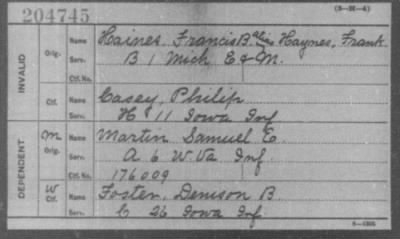 204745
(3—H—4)
INVALID
Orig. Name Haines, Francis B alias Haynes, Frank
Serv. B 1 Mich E & M.
Ctf. No.
Ctf. Name Casey, Philip
Serv. H 11 Iowa Inf
DEPENDENT
M Orig. Name Martin Samuel E.
Serv. A 6 W. Va Inf.
Ctf. No. 176009
W Ctf. Name Foster, Denison B.
Serv. 26 Iowa Inf